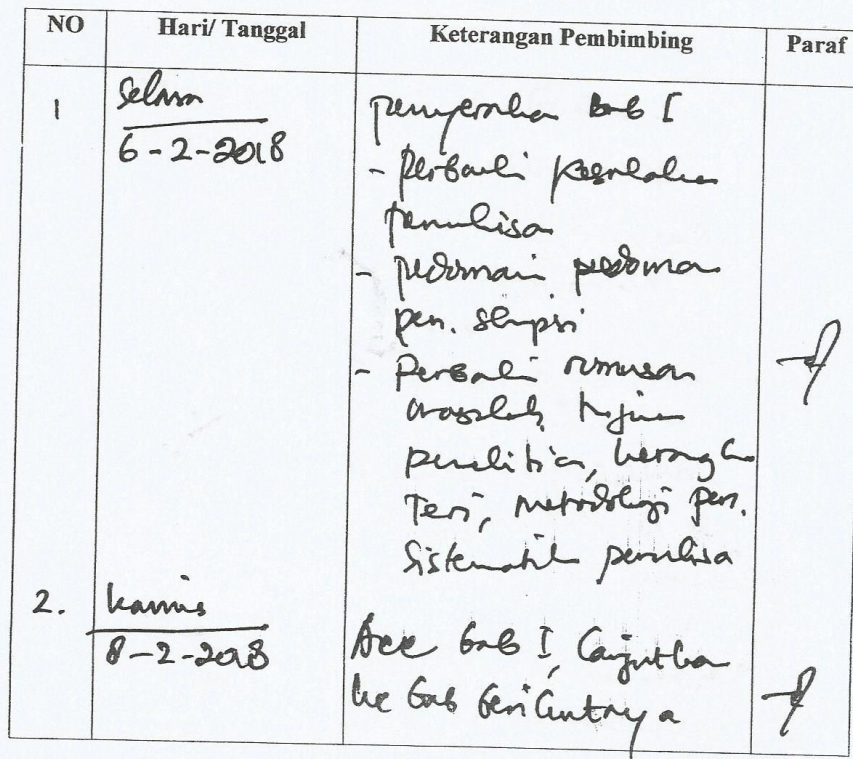 NO Hari/ Tanggal Keterangan Pembimbing Paraf
1 Selasa
6-2-2018
penyerahan bab I
- Perbaiki kesalahan
penulisan
- pedomani pedoman
pen. skripsi
- Perbaiki rumusan
masalah, tujuan
penelitian, kerangka
Teori, metodologi pen.
Sistematik penulisan
2. kamis
8-2-2018
Acc bab I, lanjutkan
ke bab berikutnya